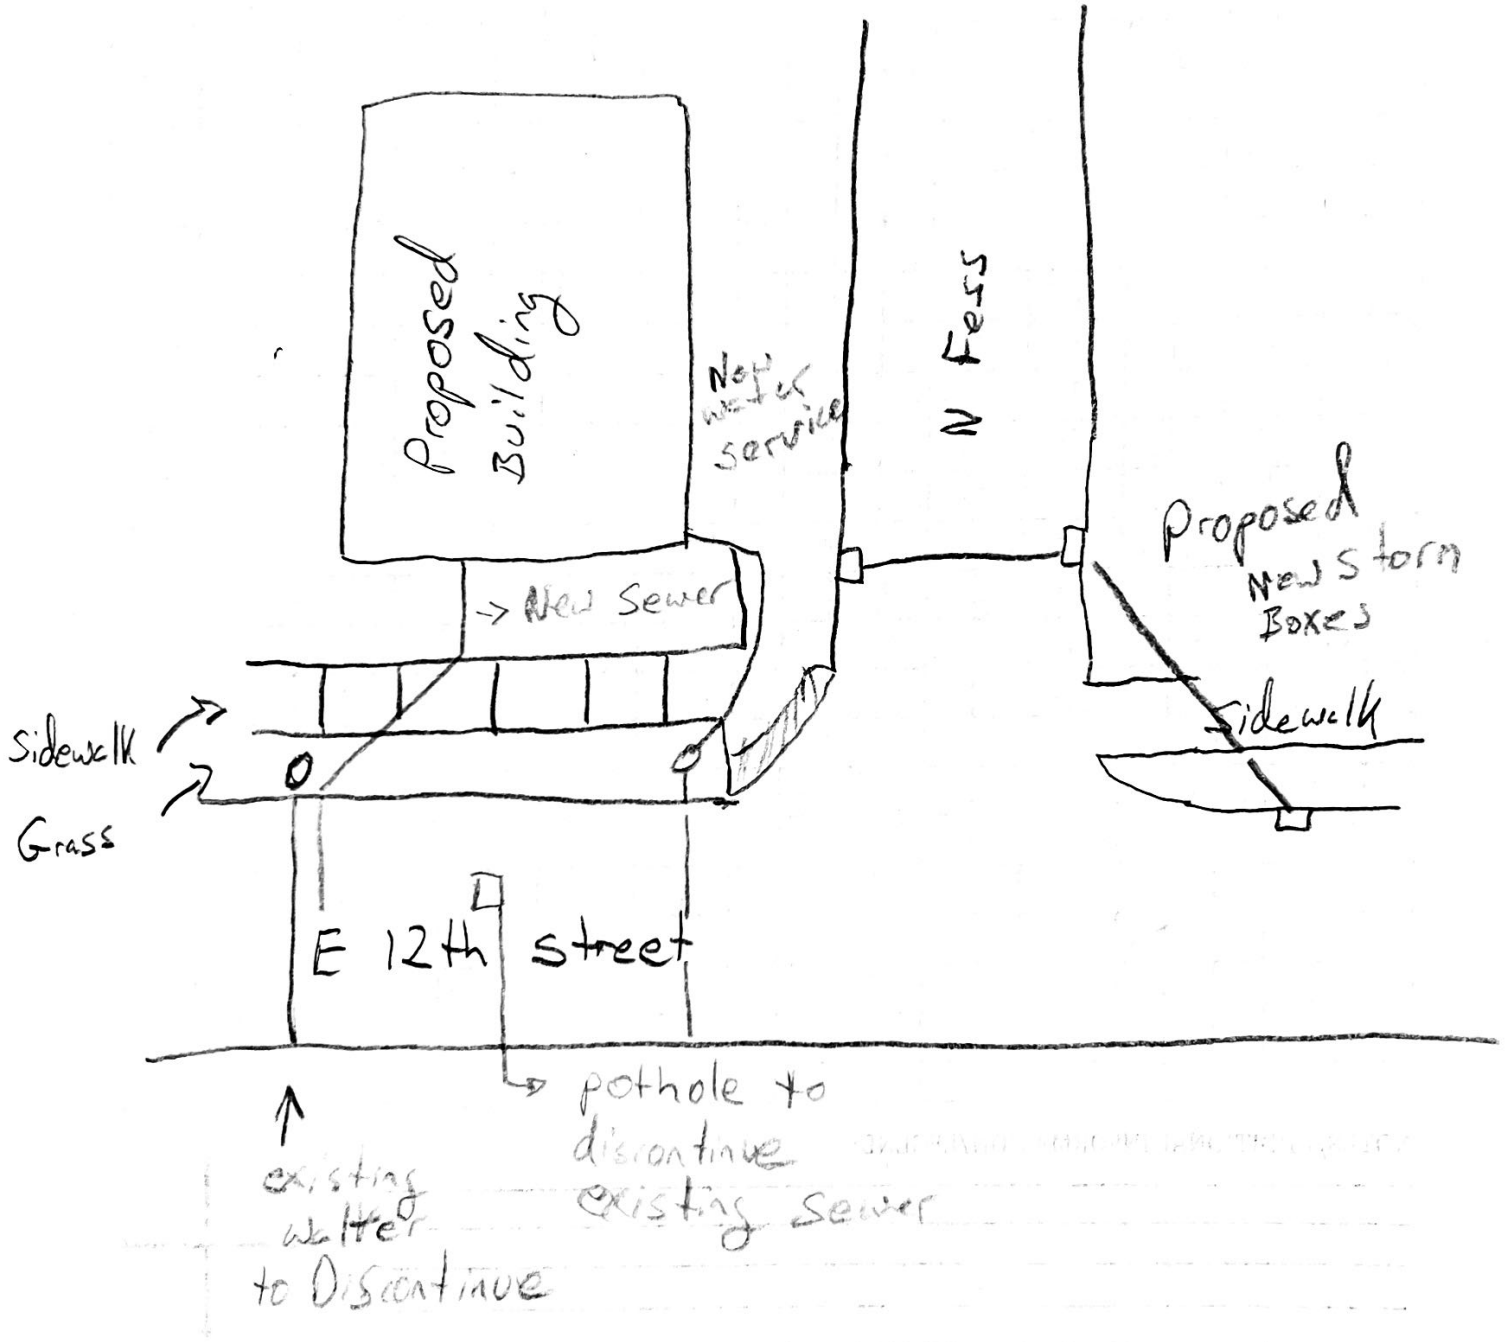 Proposed
Building
N Fess
New
water
service
Proposed
New Storm
Boxes
→ New Sewer
Sidewalk
Sidewalk
Grass
E 12th street
pothole to
discontinue
existing sewer
existing
watter
to Discontinue